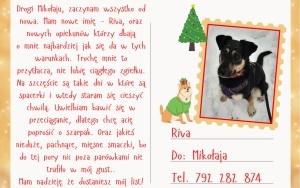 Drogi Mikołaju, zaczynam wszystko od
nowa. Mam nowe imię - Riva, oraz
nowych opiekunów którzy dbają
o mnie najbardziej jak się da w tych
warunkach. Trochę mnie to
przytłacza, nie lubię ciągłego zgiełku.
Na szczęście są takie dni w które są
spacerki i wtedy staram się cieszyć
chwilą. Uwielbiam bawić się w
przeciąganie, dlatego chcę ację
poprosić o szarpak. Oraz jakieś
nieduże, pachnące, mięsne smaczki, bo
do tej pory nic poza parówkami nie
trafiło w mój gust..
Mam nadzieję że dostaniesz mój list!
Riva
Do: Mikołaja
Tel. 792 282 874